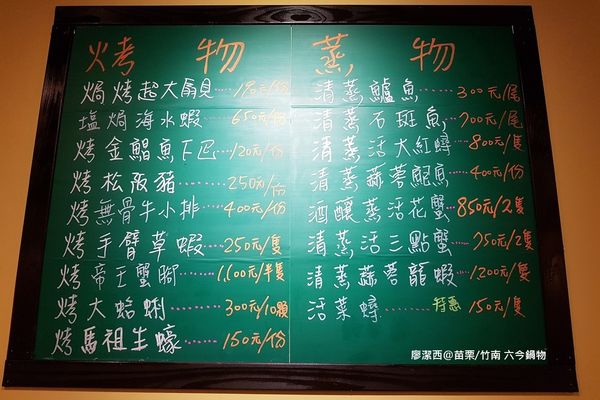 烤物
焗烤超大扇貝……180元/份
塩焗海水蝦……650元/份
烤金鯧魚下巴……120元/份
烤松阪豬……250元/份
烤無骨牛小排……400元/份
烤手臂草蝦……250元/隻
烤帝王蟹腳……1,100元/半隻
烤大蛤蜊……300元/10顆
烤馬祖生蠔……150元/份
蒸物
清蒸鱸魚……300元/尾
清蒸石斑魚……700元/尾
清蒸活大紅蟳……800元/隻
清蒸蒜蓉鯤魚……400元/份
酒釀蒸活花蟹……850元/2隻
清蒸活三點蟹……750元/2隻
清蒸蒜蓉龍蝦……1,200元/隻
活菜蟳……特惠150元/隻
廖潔西@苗栗/竹南 六今鍋物